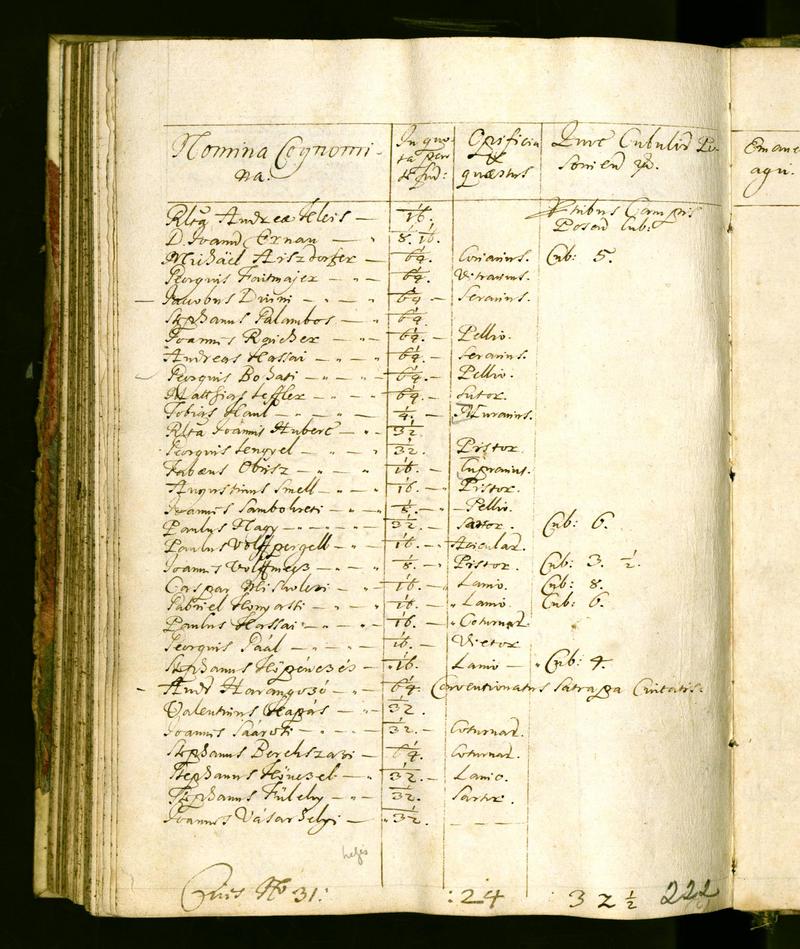 Nomina Cognomi-
na.
In quo-
ta pen
Opificia
&
quæstus
Quot Cubulis Po-
Emane
agri.
Rlta Andreæ Kleis — 1/16.
Campis
Posen Cub.
D. Joann Ernan — 1/8. 1/16.
Michäel Aiszdorfer — 1/64. Corianus. Cub: 5.
Georgius Faitmajer — 1/64. Vitrarius.
Jacobus Divini — 1/64 — Serarius.
Stephanus Palambos — 1/64.
Joannis Raicher — 1/64. — Pellio.
Andreas Kassai — 1/64. — Serarius.
Georgius Bohati — 1/64. — Pellio.
Matthias Leffler — 1/64. — Sutor.
Tobias Haul — 1/4. — Murarius.
Rlta Joannis Hubert — 1/32
Georgius Lengyel — 1/32. Pistor.
Fabæus Obisz — 1/16. Cuprarius.
Augustinus Smell — 1/16. — Pistor.
Joannis Sambokreti — 1/8. — Pellio.
Paulus Nagy — 1/32. — Sartor. Cub: 6.
Paulus Volffpergell — 1/16. — Acicular.
Joannis Volffmejs — 1/8. — Pistor. Cub: 3. 1/2.
Caspar Miskolczi — 1/16. — Lanio. Cub: 8.
Gabriel Honyasti — 1/16. — Lanio Cub: 6.
Paulus Kassai — 1/16. — Coturnat.
Georgius Paál — 1/16. — Vietor
Stephanus — 1/16. Lanio — Cub: 4.
— Andr Harangozó — 1/64 Conventionatus Satrapa Civitatis.
Valentinus Kapás — 1/32.
Joannis Sáárosi — 1/32. — Coturnat.
Stephanus Berekszaszi — 1/64. Coturnat.
Stephanus — 1/32. — Lanio.
Stephanus Füleky — 1/32. Sartor.
Joannis Vásárhelyi — 1/32. — —
helyis
Cives No 31: :24 32 1/2 222